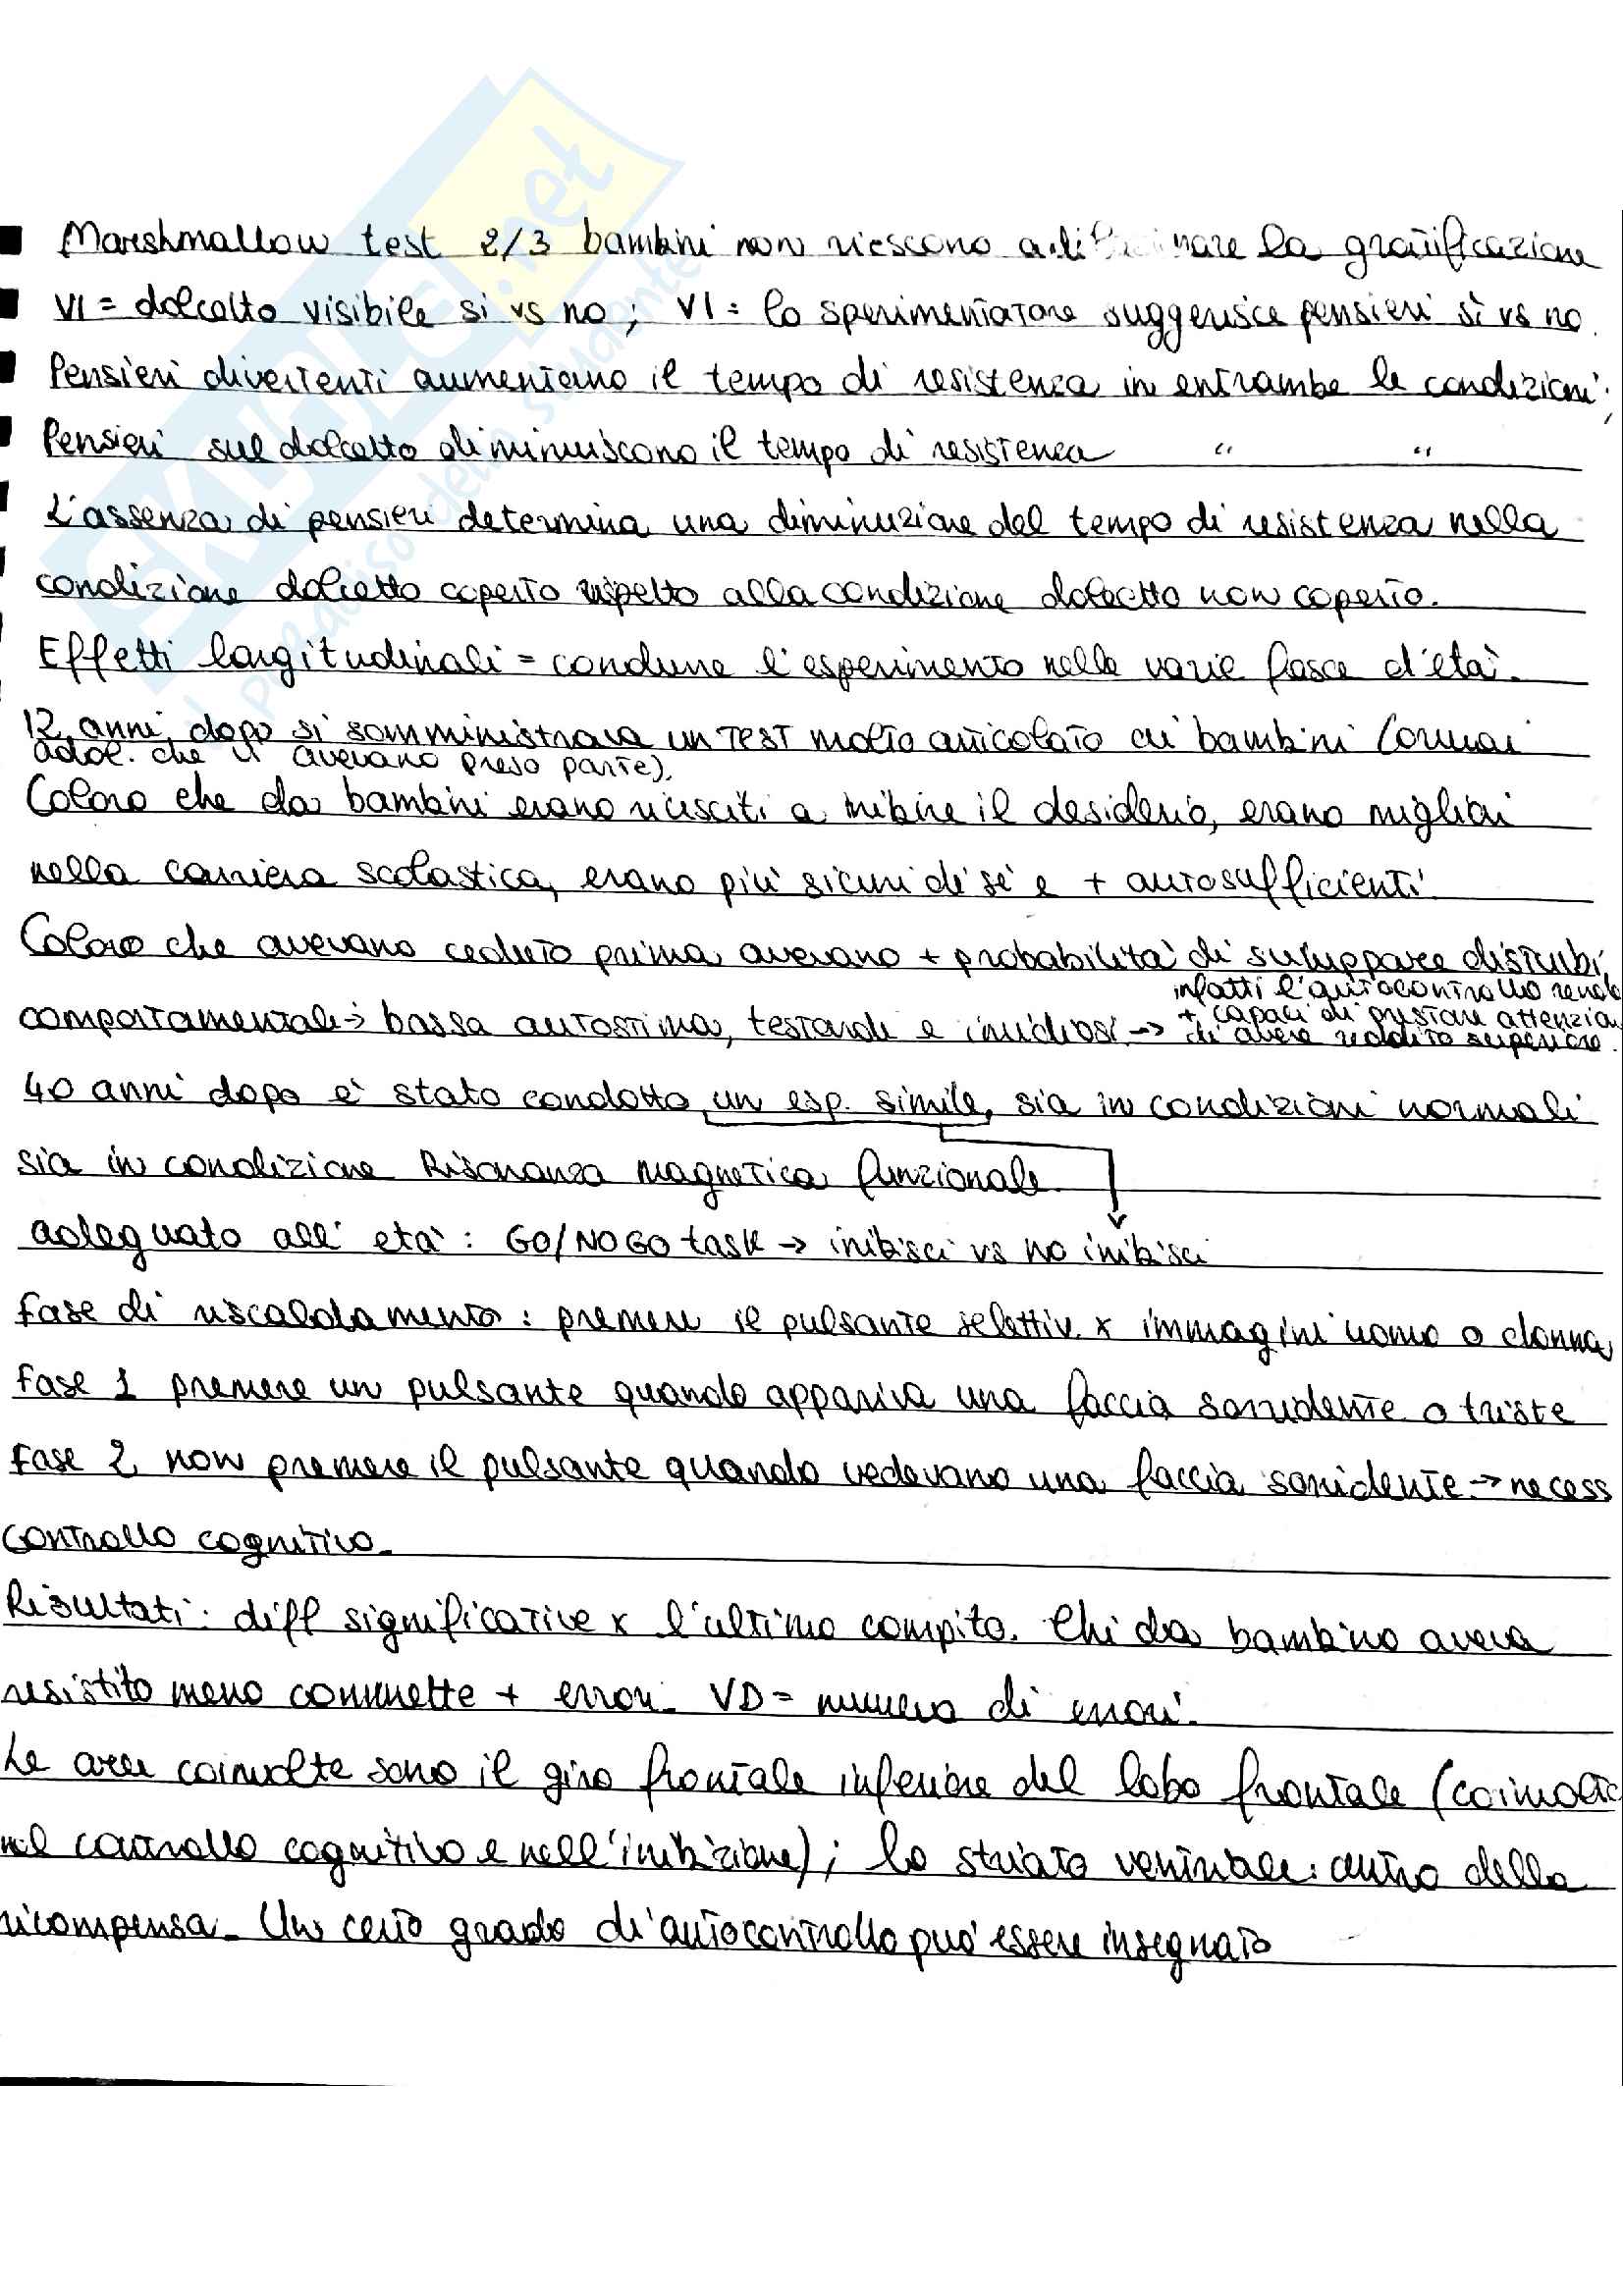 Marshmallow test 2/3 bambini non riescono a la gratificazione
VI = dolcetto visibile si vs no; VI = lo sperimentatore suggerisce pensieri sì vs no.
Pensieri divertenti aumentano il tempo di resistenza in entrambe le condizioni;
Pensieri sul dolcetto diminuiscono il tempo di resistenza " "
L'assenza di pensieri determina una diminuzione del tempo di resistenza nella
condizione dolcetto coperto rispetto alla condizione dolcetto non coperto.
Effetti longitudinali = condurre l'esperimento nelle varie fasce d'età.
12 anni dopo si somministrava un test molto articolato ai bambini (ormai
adol. che vi avevano preso parte).
Coloro che da bambini erano riusciti a inibire il desiderio, erano migliori
nella carriera scolastica, erano più sicuri di sé e + autosufficienti.
Coloro che avevano ceduto prima avevano + probabilità di sviluppare disturbi
comportamentali → bassa autostima, testardi e invidiosi →
infatti l'autocontrollo rende
+ capaci di prestare attenzione
di avere reddito superiore.
40 anni dopo è stato condotto un esp. simile, sia in condizioni normali
sia in condizione Risonanza magnetica funzionale.
adeguato all'età: GO/NOGO task → inibisci vs no inibisci
Fase di riscaldamento: premere il pulsante selettiv. x immagini uomo o donna
Fase 1 premere un pulsante quando appariva una faccia sorridente o triste
Fase 2 non premere il pulsante quando vedevano una faccia sorridente → necess
controllo cognitivo.
Risultati: diff significative x l'ultimo compito. Chi da bambino aveva
resistito meno commette + errori. VD = numero di errori.
Le aree coinvolte sono il giro frontale inferiore del lobo frontale (coinvolto
nel controllo cognitivo e nell'inibizione); lo striato ventrale: centro della
ricompensa. Un certo grado di autocontrollo può essere insegnato
SKUOLA.net
il paradiso dello studente